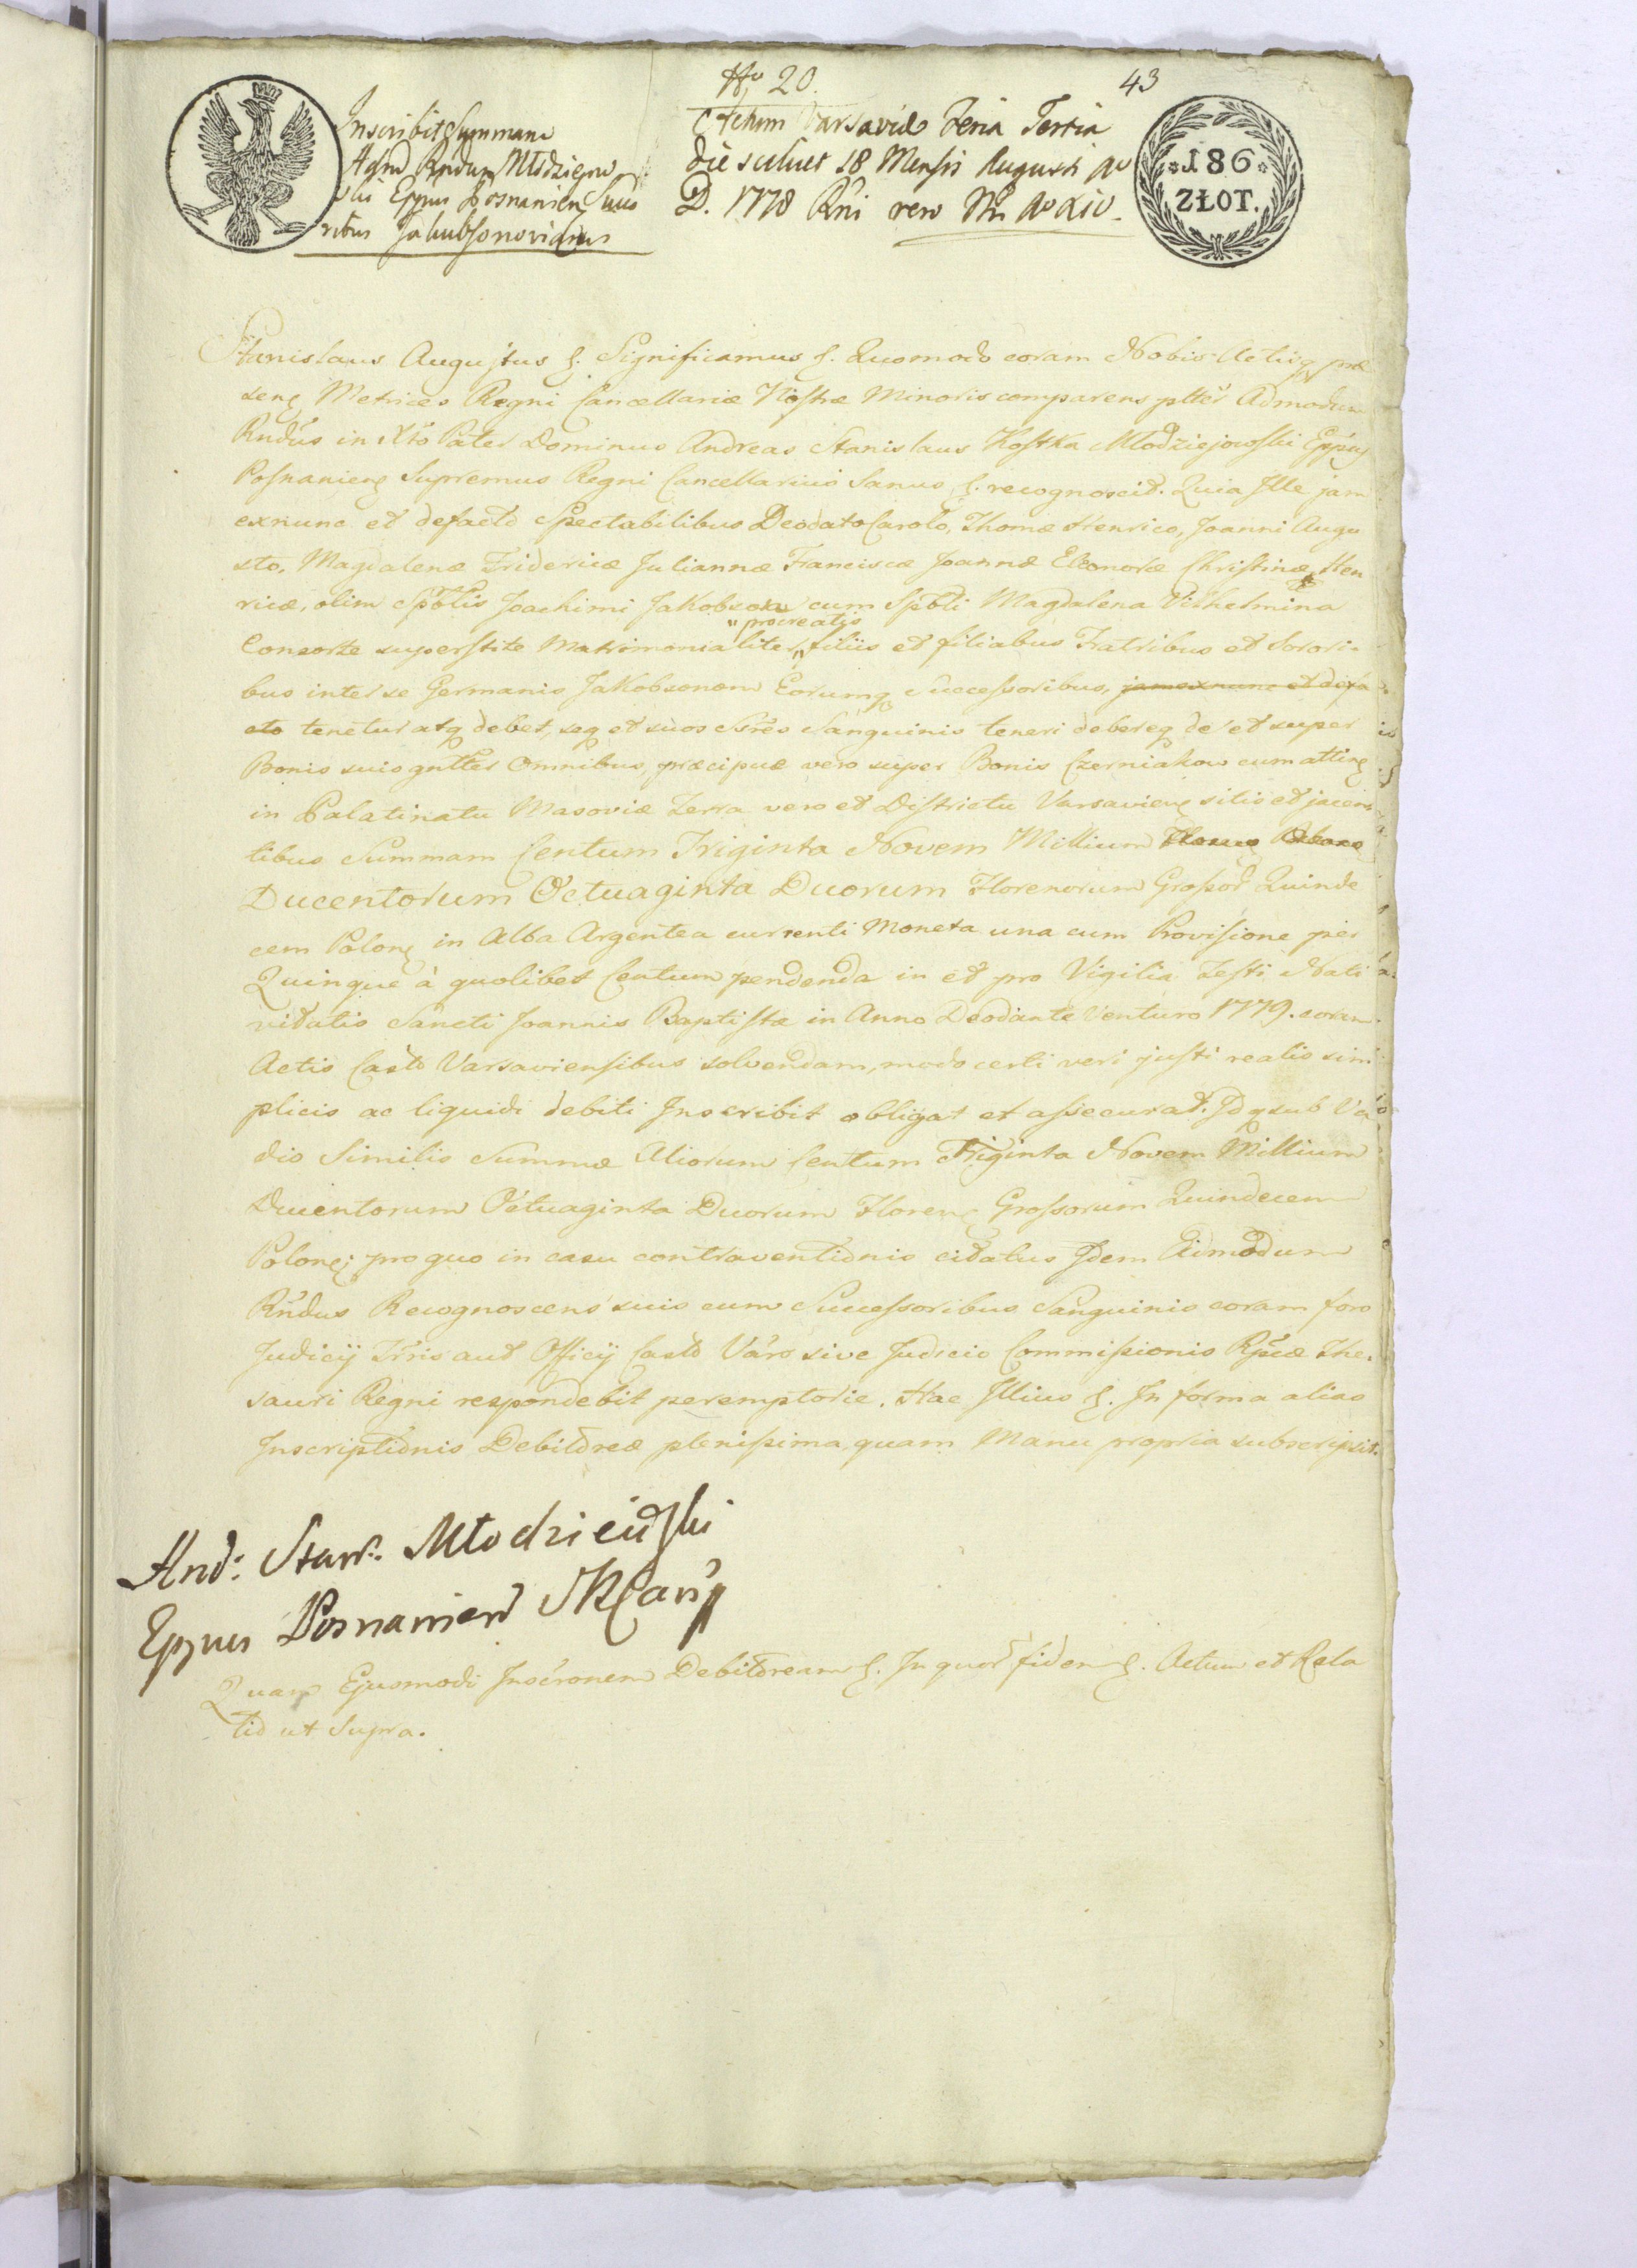 No 20.
43
Inscribit Summam
Admd Rndum Młodziejow
ski Eppus Posnanien Succ
ribus Jakubsonovianis
Actum Varsaviæ Feria Tertia
die scilicet 18 Mensis Augusti Ao
D. 1778 Rni vero Nri Ao XIV.
186
ZŁOT.
Stanislaus Augustus &. Significamus &. Quomodo coram Nobis Actisq præ
senq Metrices Regni Cancellariæ Nostræ Minoris comparens pltěr Admodum
Rndus in Xto Pater Dominus Andreas Stanislaus Kostka Młodziejowski Eppus
Posnanienq Supremus Regni Cancellarius Sanus &. recognoscit. Quia Ille jam
exnunc et defacto Spectabilibus Deodato Carolo, Thomæ Henrico, Joanni Augu
sto, Magdalenæ Fridericæ Juliannæ Franciscæ Joannæ Eleonoræ Christinæ Hen
ricæ, olim Spblis Joachimi Jakobson cum Spbli Magdalena Vilhelmina
" procreatis
Consorte superstite Matrimonialiter " filiis et filiabus Fratribus et Sorori-
bus inter se Germanis Jakobsonom Eorumq Successoribus, jam exnunc et defa
cto tenetur atq debet, seq et suos Sśres Sanguinis teneri debereq de et super
Bonis suis gnltěr Omnibus, præcipue vero super Bonis Czerniakow cum attinq
in Palatinatu Masoviæ Terra vero et Districtu Varsavienq sitis et jacen
tibus Summam Centum Triginta Novem Millium
Ducentorum Octuaginta Duorum Florenorum Grossor Quinde
cem Polonq in Alba Argentea currenti Moneta una cum Provisione per
Quinque à quolibet Centum pendenda in et pro Vigilia Festi Nati
vitatis Sancti Joannis Baptistæ in Anno Deodante Venturo 1779. coram
Actis Castr Varsaviensibus solvendam, modo certi veri justi realis sim
plicis ac liquidi debiti Inscribit obligat et assecurat. Idq sub Va
dio Similis Summæ Aliorum Centum Triginta Novem Millium
Ducentorum Octuaginta Duorum Florenq Grossorum Quindecem
Polonq; pro quo in casu contraventionis citatus Idem Admodum
Rndus Recognoscens suis cum Successoribus Sanguinis coram foro
Judicij Trris aut Officij Castr Vars sive Judicio Commissionis Rpcæ The-
sauri Regni respondebit peremptorie. Hac Illius &. In forma alias
Inscriptionis Debitoreæ plenissima, quam Manu propria subscripsit.
And: Stan: Młodzieioski
Eppus Posnanien SRCanp
Quam Ejusmodi Inscronem Debitoream &. In quor fidem &. Actum et Rela
tio ut Supra.